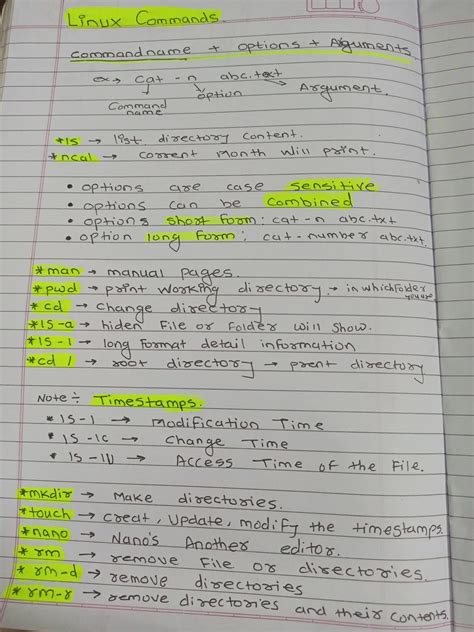 Linux Commands.
Commandname + options + Arguments
ex → cat -n abc.text
Command name
option
Argument.
*ls → list directory content.
*ncal → corrent month will print.
• options are case sensitive
• options can be combined
• options short form: cat-n abc.txt
• option long form: cat-number abc.txt
*man → manual pages.
*pwd → print working directory → in which folder
you are
*cd → change directory
*ls-a → hiden File or Folder will show.
*ls-l → long format detail information
*cd / → root directory → prent directory
Note ÷ Timestamps.
* ls-l → Modification Time
* ls -lc → Change Time
* ls -lu → Access Time of the File.
*mkdir → Make directories.
*touch → creat, Update, modify the timestamps.
*nano → Nano's Another editor.
*rm → remove File or directories.
*rm-d → remove directories
*rm-r → remove directories and their contents.